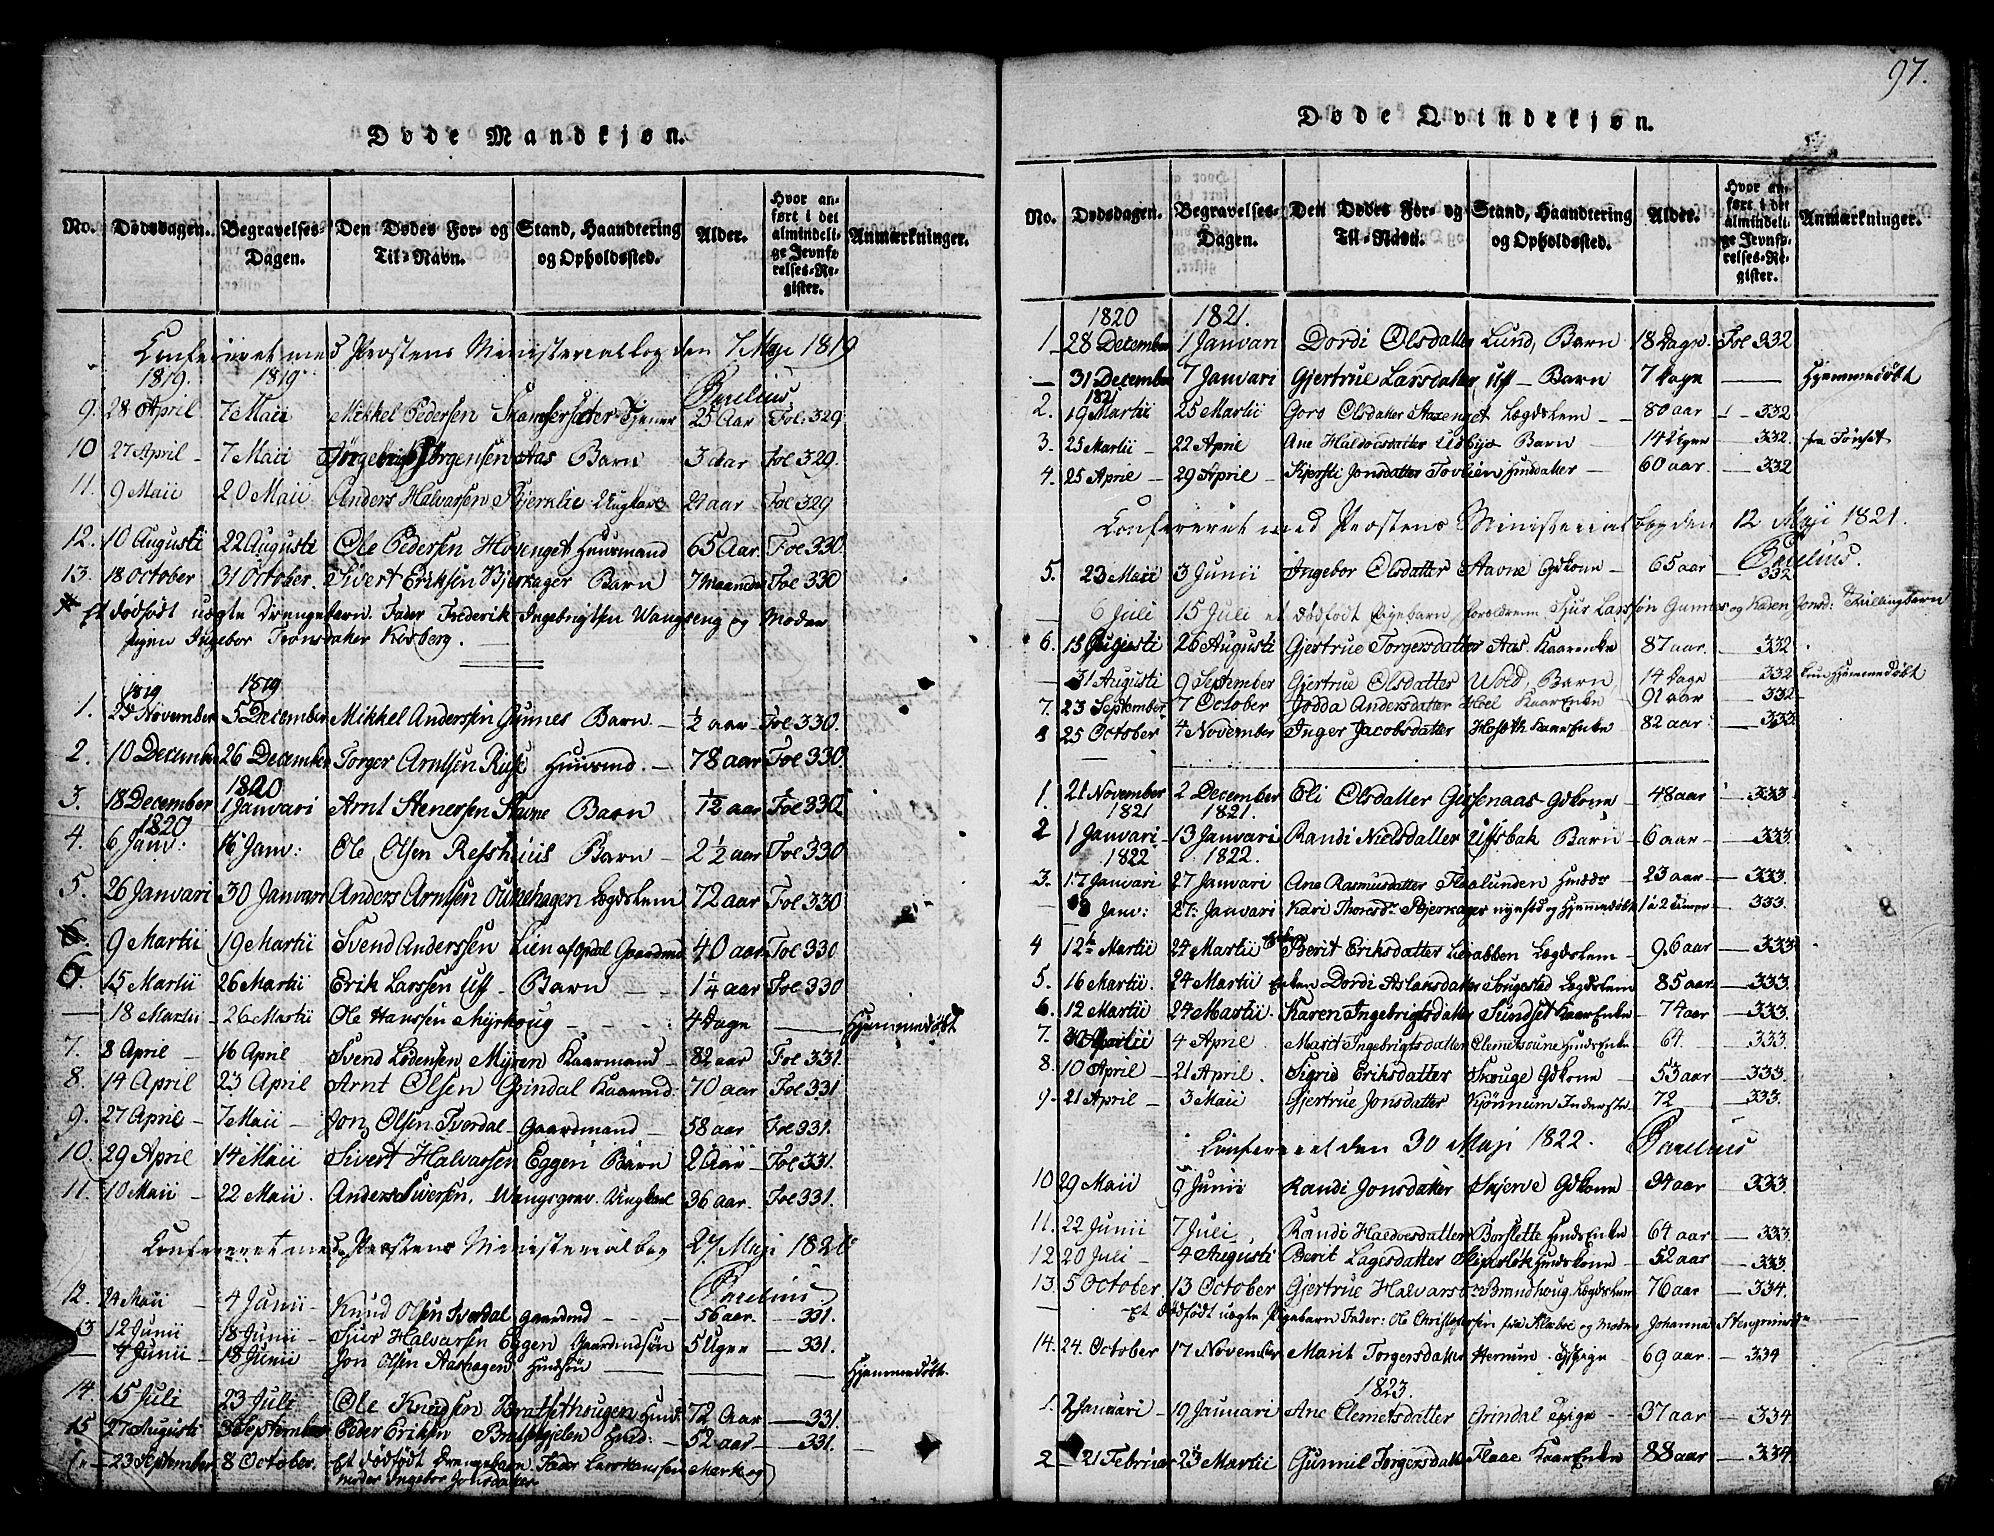 97.
Døde Mandkjøn.
No. Dødsdagen. Begravelses-Dagen. Den Dødes For- og Til-Navn. Stand, Haandtering og Opholdssted. Alder. Hvor anført i det almindelige Jevnførelses-Register. Anmærkninger.
Confereret med Provstens Ministerialbog den 7 Maji 1819
1819. 1819
9. 28 April 7 Maii Mikkel Pedersen Tjener 25 Aar Fol: 329
10 27 April - 7 Maii Ingebrigt Jørgensen Aas Barn 3 Aar Fol 329.
11. 9 Maii 20 Maii Anders Halvorsen Bjerklie Ungkarl 24 aar Fol 329
12. 10 Augusti 22 Augusti Ole Pedersen Hovenget Huusmand 65 Aar. Fol 330.
13. 18 October 31 October. Sivert Eriksen Bjerkager Barn 7 Maaneder Fol 330
Et dødfødt uægte Drengebarn. Fader Frederik Ingebrigtsen Wangseng og Moder
Pigen Ingebor Tronsdatter Kosberg.
1819 1819
1. 25 November 5 December Mikkel Anderssen Gunnes Barn. - ½ aar - Fol 330.
2. 10 December 26 December Torger Arntsen Rise Huusmd. - 78 aar Fol 330.
1820
3. 18 December 1 Janvari Arnt Stenersen Stavne Barn - 1/12 aar Fol 330.
1820
4. 6 Janv: 16 Janv: Ole Olsen Refshuus Barn - 2½ aar Fol 330
5. 26 Janvari 30 Janvari Anders Arntsen Lægdslem 72 aar Fol 330
6. 9 Martii 19 Martii Svend Anderssen Lien af Opdal Gaardmd 40 aar Fol 330
6 15 Martii 26 Martii Erik Larssen Uff - Barn - 1¼ aar Fol 330
— 18 Martii - 26 Martii Ole Hanssen Myrhoug - 4 Dage — Hjemmedøbt
7. 8 April - 16 April Svend Lodensen Myren Kaarmand - 82 aar Fol 331.
8. 14 April 23 April Arnt Olsen Grindal Kaarmd. 70 aar Fol 331.
9. 27 April - 7 Maii - Jon Olsen Tverdal - Gaardmand - 58 aar Fol 331.
10. 29 April 14 Maii Sivert Halvarsen Eggen Barn 2 Aar - Fol 331.
11. 10 Maii - 22 Maii. Anders Siversen, Wangsgrav. Ungkarl 36 aar. Fol 331.
Confereret med Provstens Ministerialbog 27 Maji 1820
12. 24 Maii - 4 Junii - Knud Olsen Tverdal Gaardmd - 56 aar. - 331.
13 12 Junii 18 Junii - Siur Halvarsen Eggen Gaardmdsøn 5 Uger - 331.
— 4 Junii - 18 Junii Jon Olsen Aashagen Husdsøn — Hjemmedøbt.
14. 15 Juli 23 Juli Ole Knudsen Bratsethougen Husd. 72 Aar — 331.
15 27 Augusti 3 September Peder Eriksen Husd: - 52 aar — 331.
23 September 8 October. Et dødfødt Drengebarn Fader Lars Hanssen Merk og
moder Ingebor Jonsdatter
Døde Qvindekjøn.
No. Dødsdagen. Begravelses-Dagen. Den Dødes For- og Til-Navn. Stand, Haandtering og Opholdssted. Alder. Hvor anført i det almindelige Jevnførelses-Register. Anmærkninger.
1820 1821.
1. 28 December 1 Janvari Dordi Olsdatter Lund, Barn 18 Dage. Fol 332
— 31 December 7 Janvari Gjertrue Larsdatter, Uff - Barn 7 Dage — Hjemmedøbt
1821
2. 19 Martii 25 Martii Goro Olsdatter Stavenget Lægdslem - 80 aar - 332
3. 25 Martii - 22 April Ane Haldorsdatter Udbye Barn 14 Uger - 332. fra Tønset
4. 25 April - 29 April - Kjersti Jonsdatter Tovlien Husdatter - 60 aar. - 332
Confereret med Provstens Ministerialbog den 12 Maji 1821.
5. 23 Maii 3 Junii Ingebor Olsdatter Stavne Gdkone - 65 aar - 332
— 6 Juli 15 Juli et dødfødt Pigebarn Forældrene Siur Larssøn Gunnes og Karen Jonsd: Tvillingbarn
6. 15 Augusti 26 Augusti Gjertrue Torgersdatter Aas Kaarenke 87 aar. - 332
— 31 Augusti 9 September Gjertrue Olsdatter Wold, Barn 14 Dage - 332 kun Hjemmedøbt
7. 23 September 7 October Jodda Andersdatter Hoel KaarEnke - 91 aar - 332
8 25 October 4 November Inger Jacobsdatter KaarEnke 82 aar - 333
1. 21 November 2 December Eli Olsdatter Gisenaas Gdkone - 48 aar - 333
1821 1821.
2 1 Janvari 13 Janvari Randi Nielsdatter Uffsbak Barn 6 aar - 333.
1822 1822.
3. 17 Janvari 27 Janvari Ane Rasmusdatter Flaalunden Husd: 23 aar - 333.
— Janv: 27: Janvari Kari Thoresdr Bjerkager nyfød og Hjemmedøbt 1 à 2 timer - 333.
4 12te Martii 24 Martii Enken Berit Eriksdatter Lierabben Lægdslem - 96 aar - 333
5. 16 Martii. 24 Martii Enken Dordi Aslaksdatter Sorgestad Lægdslem 85 aar. - 333.
6. 12 Martii 24 Martii. Karen Ingebrigtsdatter Sundset KaarEnke - 74 aar - 333.
7. 4 April. Marit Ingebrigtsdatter Clemetsoune HusdsEnke - 64. - 333.
8. 10 April - 21 April. Sigrid Eriksdatter Skouge Gdkone - 53 aar - 333.
9. 21 April - 3 Maii - Gjertrue Jonsdatter Kjørnum Inderste - 72 - 333.
Confereret den 30 Maji 1822.
10 29 Maii 9 Junii Randi Jonsdatter Skjerve Gdkone - 34 aar - 333.
11. 22 Junii 7 Juli Randi Haldorsdatter Borslette HusdsEnke 64 aar - 333.
12. 20 Juli - 4 Augusti Berit Lagesdatter Husdskone - 52 aar - 333.
13. 5 October 13 October Gjertrue Halvarsdr Brandhoug Lægdslem 76 aar - 334.
— Et dødfødt uægte Pigebarn Fader: Ole Christophersen fra Klæboe og Moder Johanna
14. 24. October 17 November Marit Torgersdatter Hernum Pige - 69 aar - 334
1823.
1. 2 Januari - 19 Januari - Ane Clemetsdatter Grindal Pige - 37 aar - 334
2 - 21 Februar 23 Martii Gunnil Torgersdatter Flaae KaarEnke - 88 aar - 334.